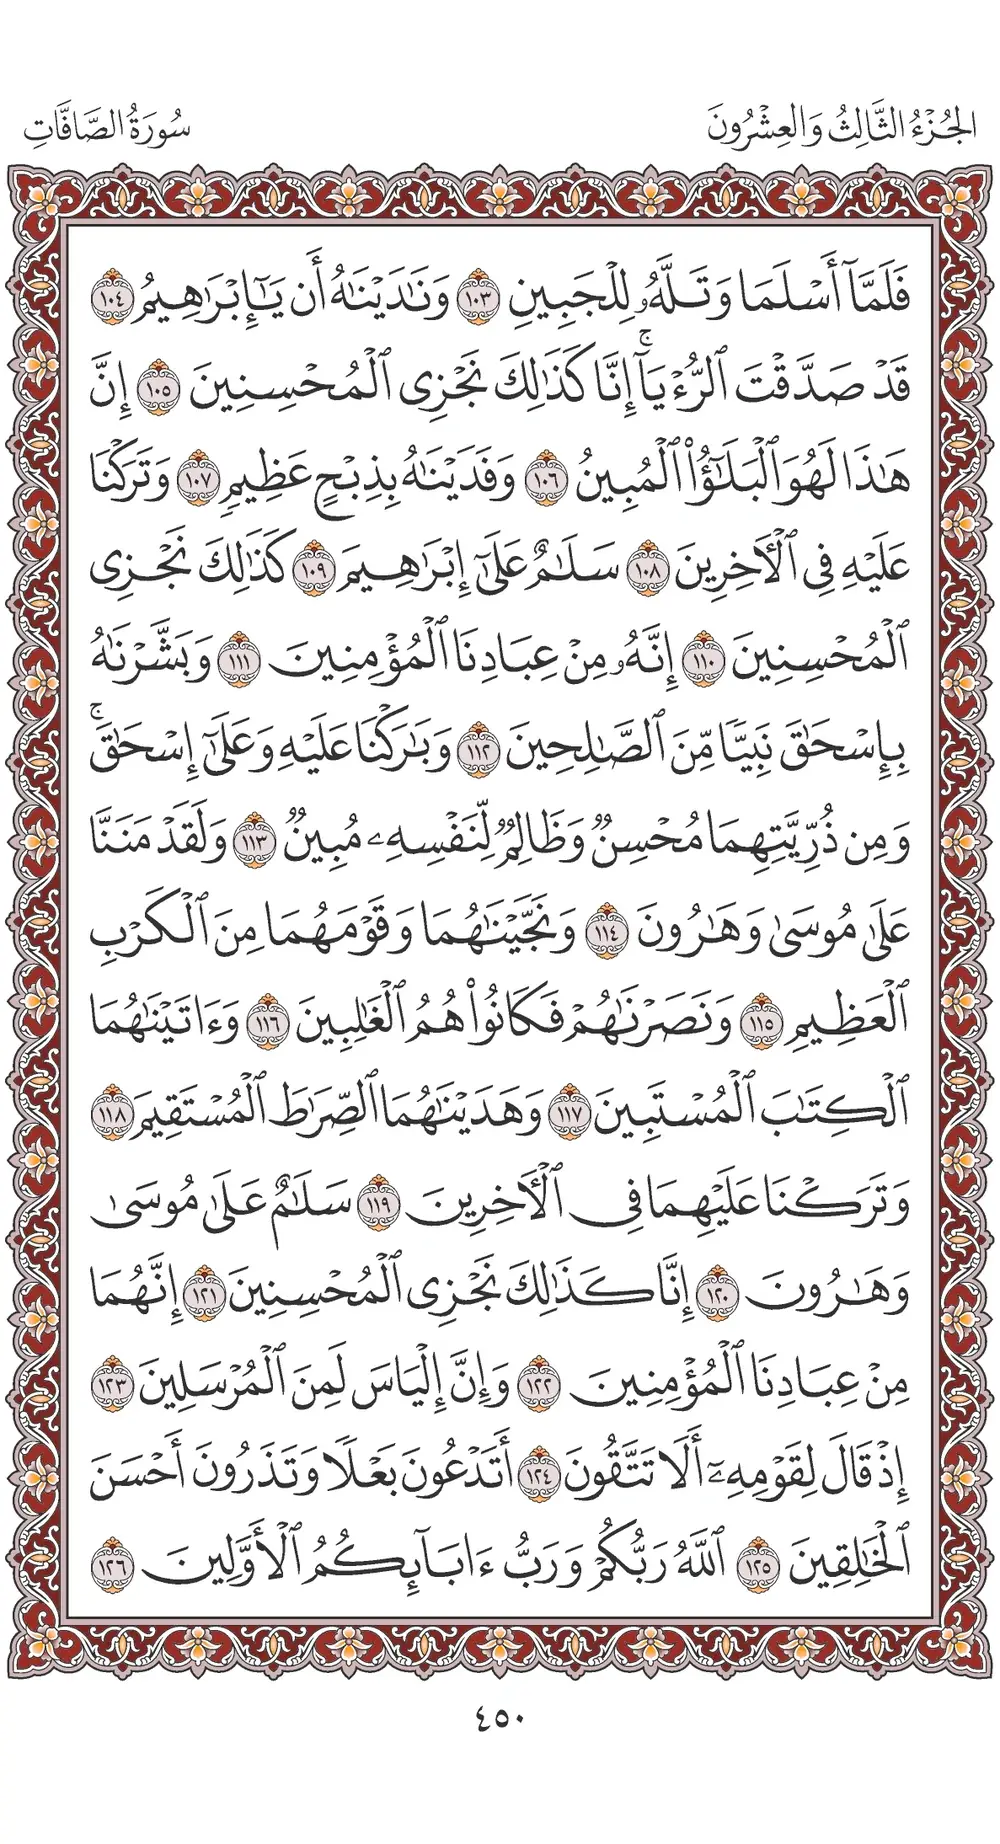 الجُزْءُ الثَّالِثُ وَالعِشْرُونَ
سُورَةُ الصَّافَّاتِ
فَلَمَّآ أَسْلَمَا وَتَلَّهُۥ لِلْجَبِينِ ١٠٣ وَنَٰدَيْنَٰهُ أَن يَٰٓإِبْرَٰهِيمُ ١٠٤
قَدْ صَدَّقْتَ ٱلرُّءْيَآۚ إِنَّا كَذَٰلِكَ نَجْزِى ٱلْمُحْسِنِينَ ١٠٥ إِنَّ
هَٰذَا لَهُوَ ٱلْبَلَٰٓؤُا۟ ٱلْمُبِينُ ١٠٦ وَفَدَيْنَٰهُ بِذِبْحٍ عَظِيمٍ ١٠٧ وَتَرَكْنَا
عَلَيْهِ فِى ٱلْءَاخِرِينَ ١٠٨ سَلَٰمٌ عَلَىٰٓ إِبْرَٰهِيمَ ١٠٩ كَذَٰلِكَ نَجْزِى
ٱلْمُحْسِنِينَ ١١٠ إِنَّهُۥ مِنْ عِبَادِنَا ٱلْمُؤْمِنِينَ ١١١ وَبَشَّرْنَٰهُ
بِإِسْحَٰقَ نَبِيًّا مِّنَ ٱلصَّٰلِحِينَ ١١٢ وَبَٰرَكْنَا عَلَيْهِ وَعَلَىٰٓ إِسْحَٰقَۚ
وَمِن ذُرِّيَّتِهِمَا مُحْسِنٌ وَظَالِمٌ لِّنَفْسِهِۦ مُبِينٌ ١١٣ وَلَقَدْ مَنَنَّا
عَلَىٰ مُوسَىٰ وَهَٰرُونَ ١١٤ وَنَجَّيْنَٰهُمَا وَقَوْمَهُمَا مِنَ ٱلْكَرْبِ
ٱلْعَظِيمِ ١١٥ وَنَصَرْنَٰهُمْ فَكَانُوا۟ هُمُ ٱلْغَٰلِبِينَ ١١٦ وَءَاتَيْنَٰهُمَا
ٱلْكِتَٰبَ ٱلْمُسْتَبِينَ ١١٧ وَهَدَيْنَٰهُمَا ٱلصِّرَٰطَ ٱلْمُسْتَقِيمَ ١١٨
وَتَرَكْنَا عَلَيْهِمَا فِى ٱلْءَاخِرِينَ ١١٩ سَلَٰمٌ عَلَىٰ مُوسَىٰ
وَهَٰرُونَ ١٢٠ إِنَّا كَذَٰلِكَ نَجْزِى ٱلْمُحْسِنِينَ ١٢١ إِنَّهُمَا
مِنْ عِبَادِنَا ٱلْمُؤْمِنِينَ ١٢٢ وَإِنَّ إِلْيَاسَ لَمِنَ ٱلْمُرْسَلِينَ ١٢٣
إِذْ قَالَ لِقَوْمِهِۦٓ أَلَا تَتَّقُونَ ١٢٤ أَتَدْعُونَ بَعْلًا وَتَذَرُونَ أَحْسَنَ
ٱلْخَٰلِقِينَ ١٢٥ ٱللَّهُ رَبُّكُمْ وَرَبُّ ءَابَآئِكُمُ ٱلْأَوَّلِينَ ١٢٦
٤٥٠